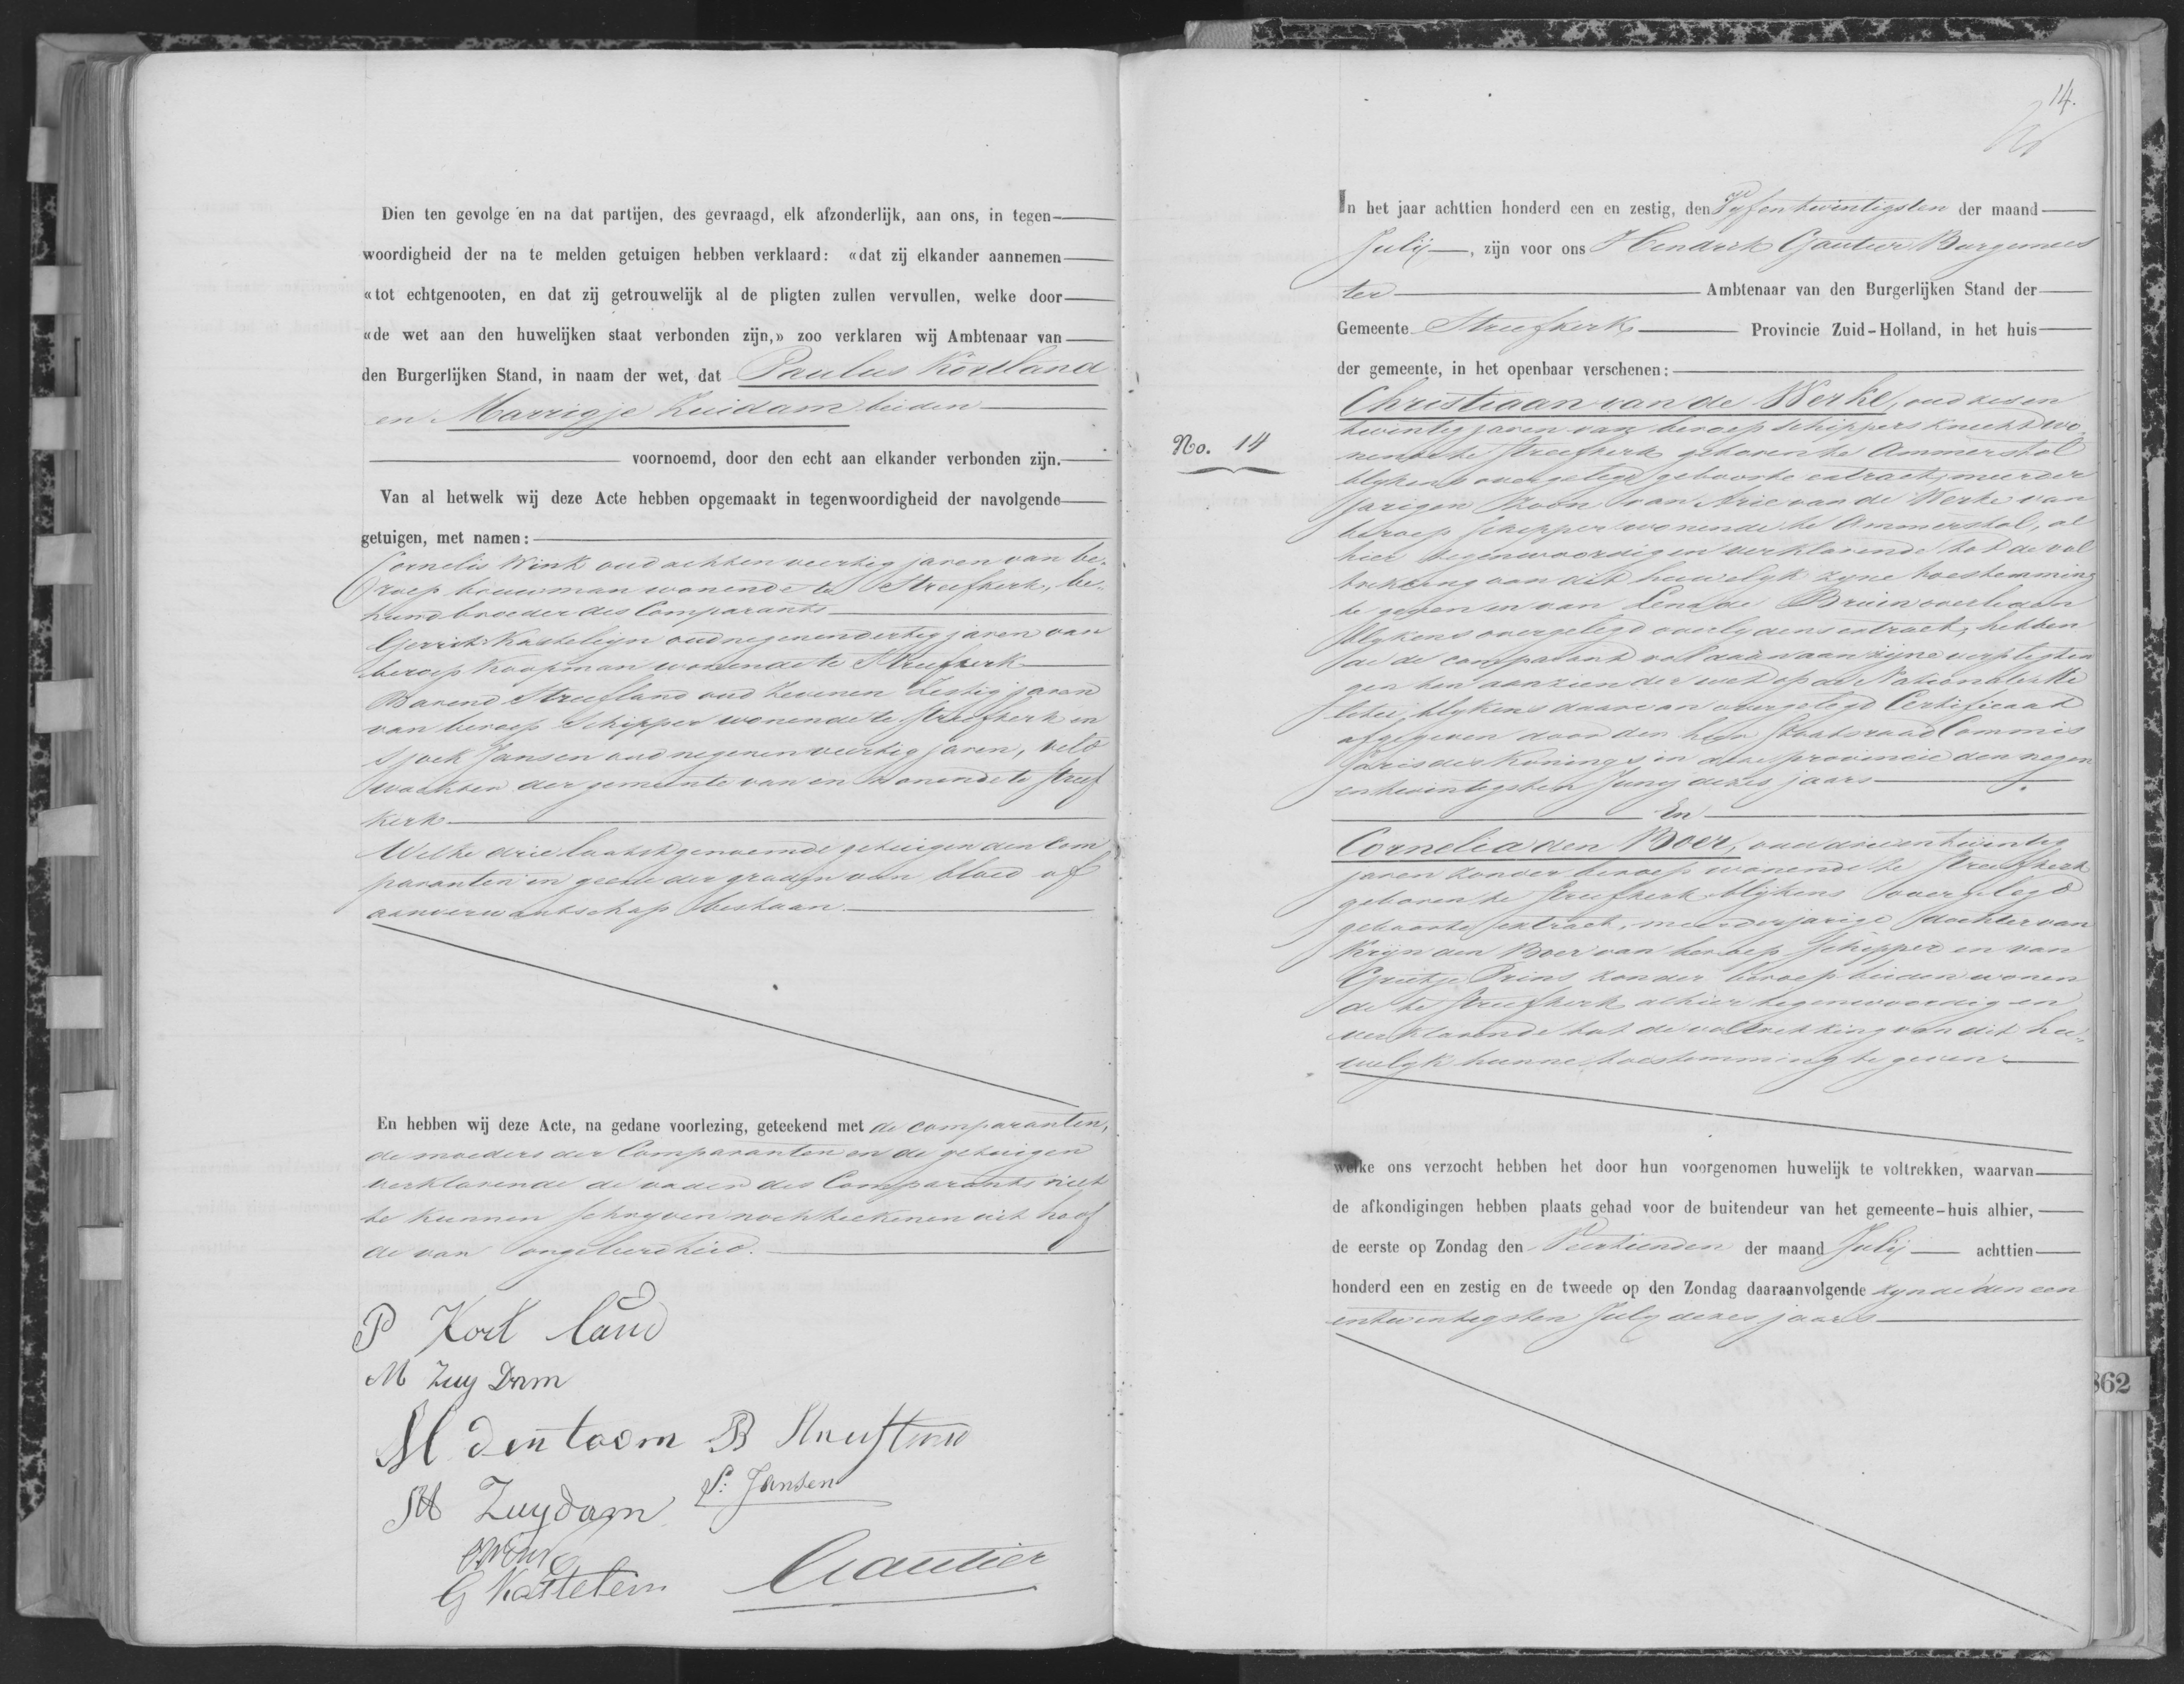 Dien ten gevolge en na dat partijen, des gevraagd, elk afzonderlijk, aan ons, in tegen-
woordigheid der na te melden getuigen hebben verklaard: «dat zij elkander aannemen
«tot echtgenooten, en dat zij getrouwelijk al de pligten zullen vervullen, welke door
«de wet aan den huwelijken staat verbonden zijn,» zoo verklaren wij Ambtenaar van
den Burgerlijken Stand, in naam der wet, dat Paulus Kortland
en Marrigje Zuidam beiden
voornoemd, door den echt aan elkander verbonden zijn.
Van al hetwelk wij deze Acte hebben opgemaakt in tegenwoordigheid der navolgende
getuigen, met namen:
Cornelis Wink oud achtenveertig jaren van be-
roep bouwman wonende te Streefkerk, be-
huwd broeder des Comparants
Gerrit Kastelijn oud negenendertig jaren van
beroep Koopman wonende te Streefkerk
Barend Streefland oud zevenen zestig jaren
van beroep Schipper wonende te Streefkerk en
Sjoek Jansen oud negenenveertig jaren, veld
wachter der gemeente van en wonende te Streef
kerk
Welke drie laatstgenoemde getuigen den Com
paranten in geene der graden van bloed of
aanverwantschap bestaan
En hebben wij deze Acte, na gedane voorlezing, geteekend met de comparanten,
de moeders der Comparanten en de getuigen
verklarende de vader des Comparants niet
te kunnen schryven noch teekenen uit hoof
de van ongeleerdheid.
P Kort land
M Zuy Dam
M den toom B Streefland
M Zuydam S: Jansen
C Wink
G Kastelein Gautier
14.
In het jaar achttien honderd een en zestig, den Vyfentwintigsten der maand
Julij, zijn voor ons Hendrik Gautier Burgemees
ter Ambtenaar van den Burgerlijken Stand der
Gemeente Streefkerk Provincie Zuid-Holland, in het huis
der gemeente, in het openbaar verschenen:
No. 14
Christiaan van de Werke, oud zesen
twintig jaren van beroep schippersknecht wo-
nende te Streefkerk geboren te Ammerstol
blykens overgelegd geboorte extract, meerder
jarigen Zoon van Arie van de Werke van
beroep Schipper wonende te Ammerstol, al
hier tegenwoordig en verklarende tot de vol
trekking van dit huwelyk zyne toestemming
te geven en van Lena de Bruin overleden
blykens overgelegd overlydens extract, hebben
de de comparant voldaan aan zijne verpligtin
gen ten aanzien der wet op de Nationale Mi
litie, blykens daarvan overgelegd Certificaat
afgegeven door den heer Staatsraad Commis
saris des Konings in deze provincie den negen
entwintigsten Juny dezes jaars
En
Cornelia den Boer, oud drieentwintig
jaren zonder beroep wonende te Streefkerk
geboren te Streefkerk blijkens overgelegd
geboorte extract, meerderjarige dochter van
Krijn den Boer van beroep Schipper en van
Grietje Prins zonder beroep beiden wonen
de te Streefkerk alhier tegenwoordig en
verklarende tot de voltrekking van dit hu-
welyk hunne toestemming te geven
welke ons verzocht hebben het door hun voorgenomen huwelijk te voltrekken, waarvan
de afkondigingen hebben plaats gehad voor de buitendeur van het gemeente-huis alhier,
de eerste op Zondag den Veertienden der maand Julij achttien
honderd een en zestig en de tweede op den Zondag daaraanvolgende zynde den een
entwintigsten July dezes jaars
862